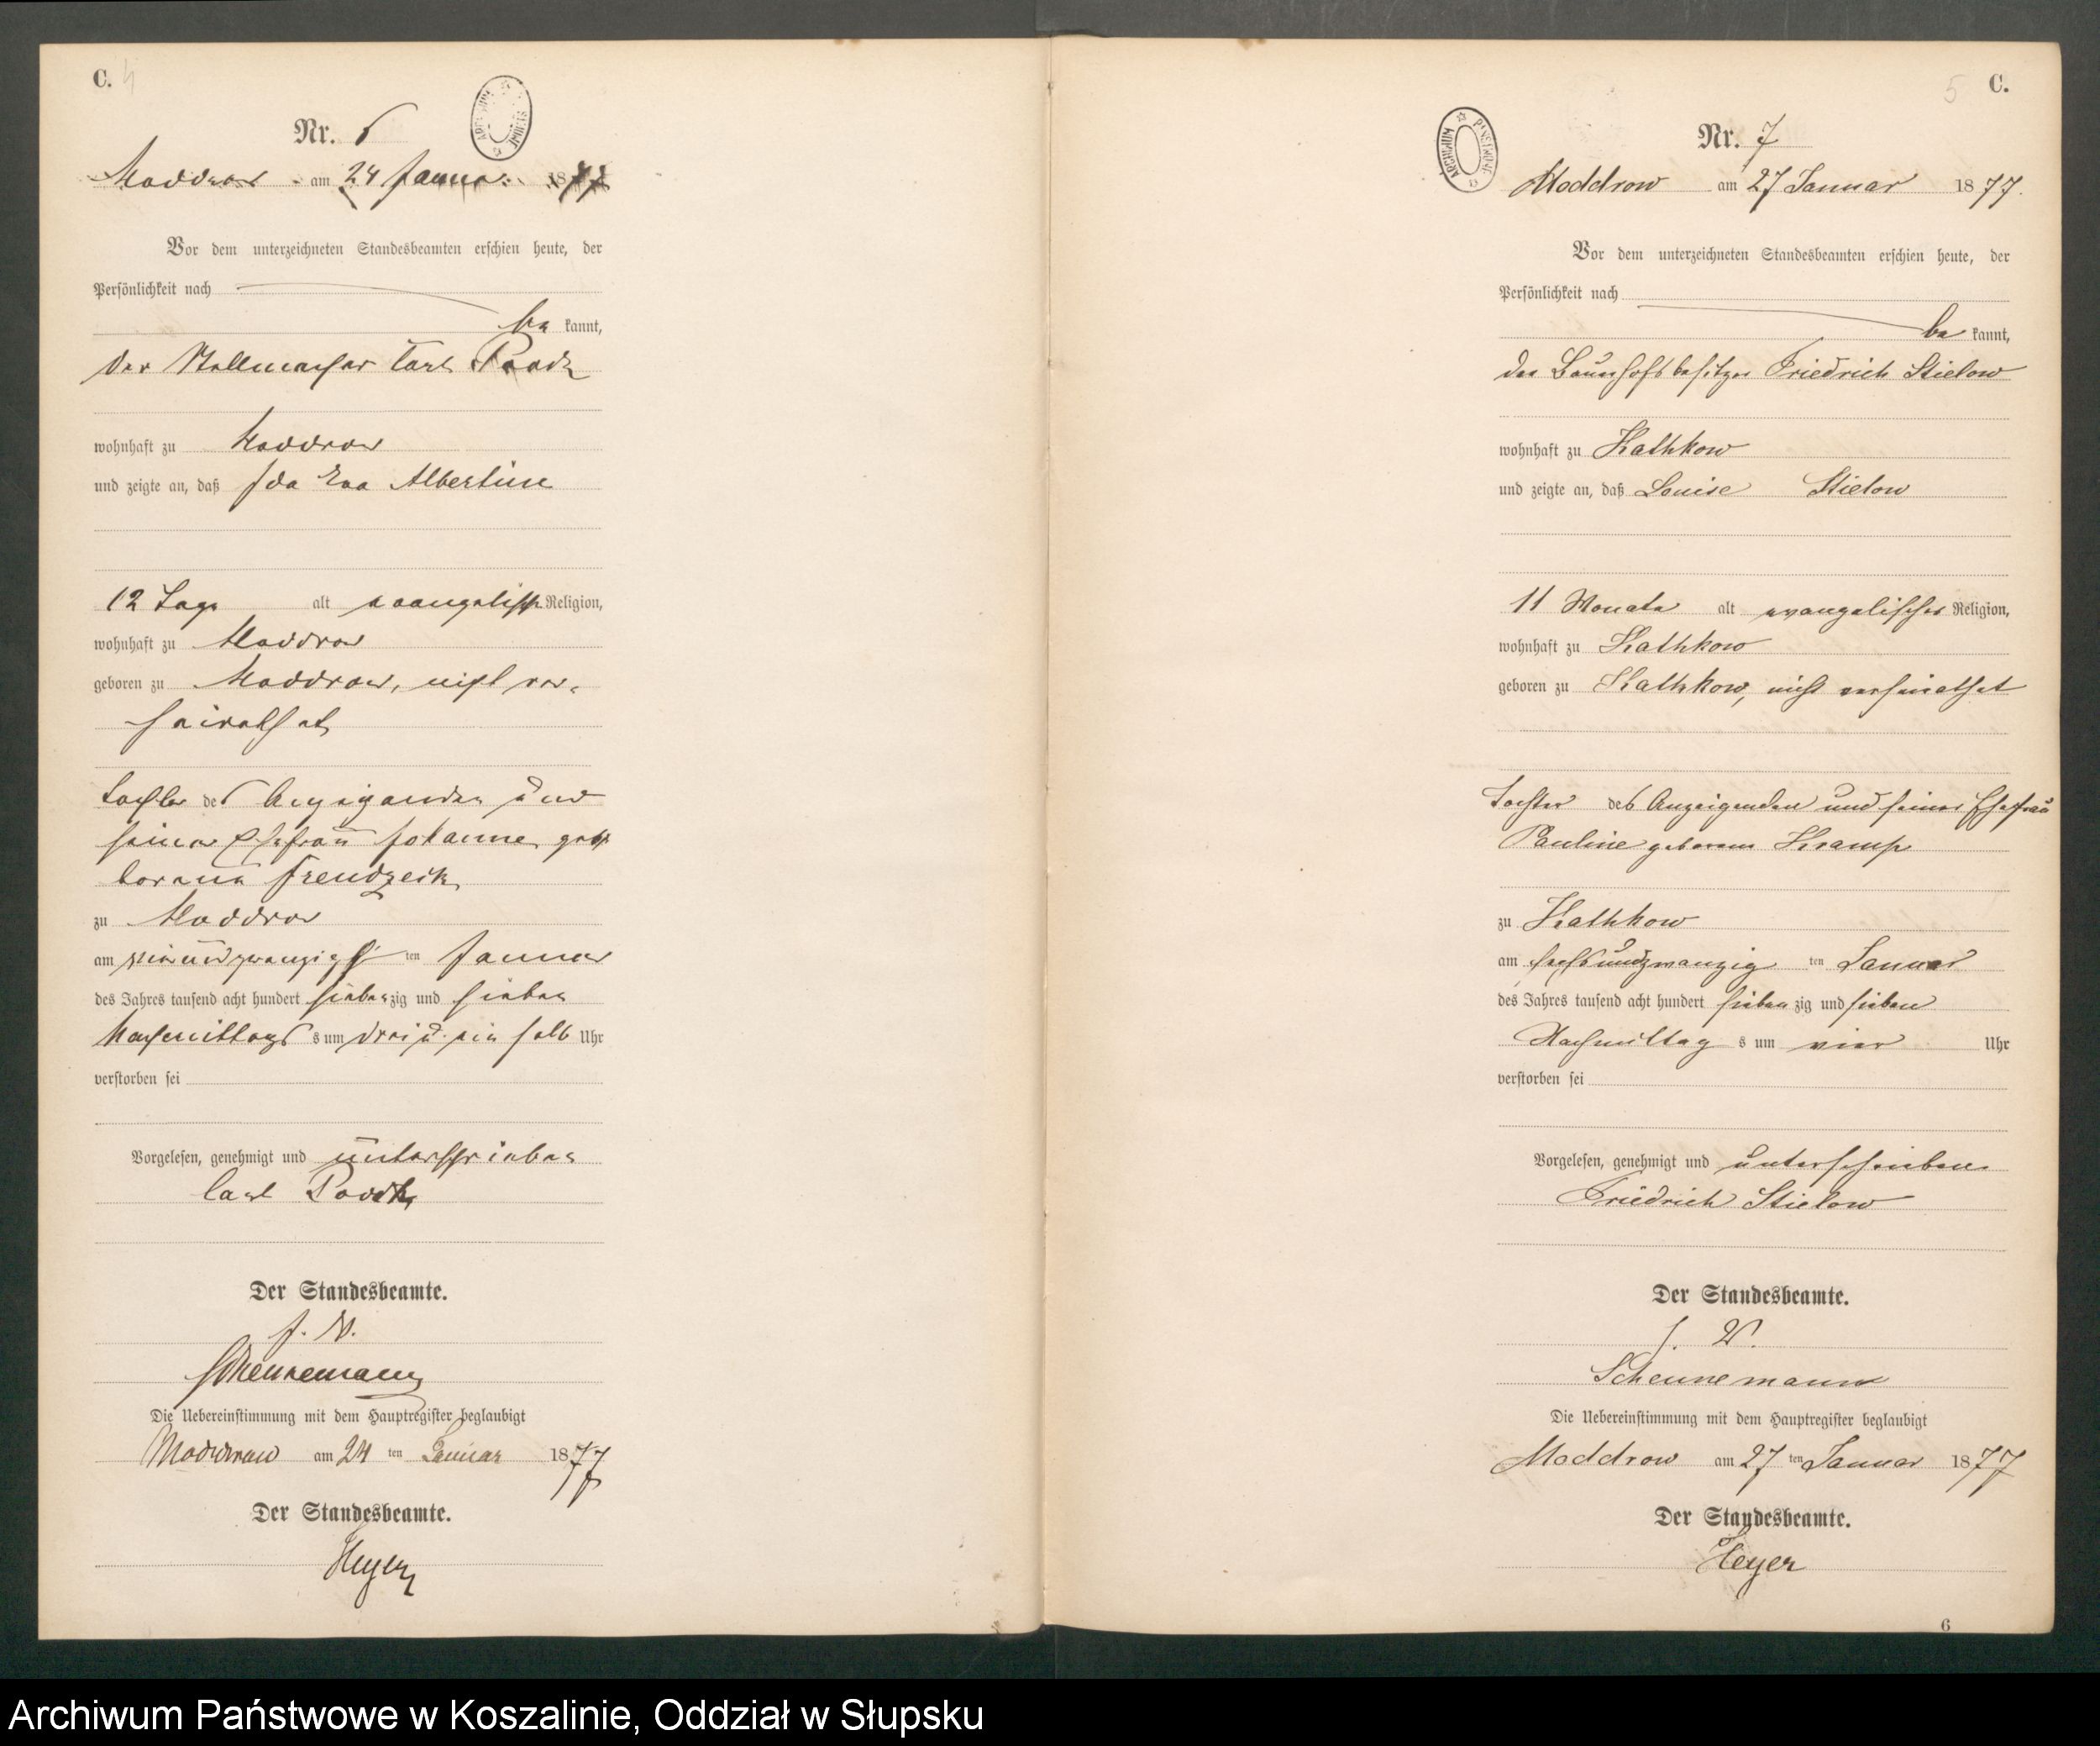 C. 4
Nr. 6
Moddrow am 24 Januar 1877
Vor dem unterzeichneten Standesbeamten erschien heute, der
Persönlichkeit nach
be kannt,
der Stellmacher Carl
wohnhaft zu Moddrow
und zeigte an, daß Ida Eva Albertine
12 Tage alt evangelisch Religion,
wohnhaft zu Moddrow
geboren zu Moddrow, nicht ver-
heirathet
Tochter des Anzeigenden und
seiner Ehefrau Johanne ge-
borene
zu Moddrow
am ten Januar
des Jahres tausend acht hundert sieben zig und sieben
Nachmittags s um drei u. ein halb Uhr
verstorben sei
Vorgelesen, genehmigt und unterschrieben
Carl
Der Standesbeamte.
J. V.
Scheunemann
Die Uebereinstimmung mit dem Hauptregister beglaubigt
Moddrow am 24 ten Januar 1877
Der Standesbeamte.
Heyer
5 C.
Nr. 7
Moddrow am 27 Januar 1877.
Vor dem unterzeichneten Standesbeamten erschien heute, der
Persönlichkeit nach
be kannt,
der Bauerhofsbesitzer Friedrich Stielow
wohnhaft zu Kathkow
und zeigte an, daß Louise Stielow
11 Monate alt evangelischer Religion,
wohnhaft zu Kathkow
geboren zu Kathkow, nicht verheirathet
Tochter des Anzeigenden und seiner Ehefrau
Pauline geborene Kramp
zu Kathkow
am sechsundzwanzig ten Januar
des Jahres tausend acht hundert sieben zig und sieben
Nachmittag s um vier Uhr
verstorben sei
Vorgelesen, genehmigt und unterschrieben
Friedrich Stielow
Der Standesbeamte.
J. V.
Scheunemann
Die Uebereinstimmung mit dem Hauptregister beglaubigt
Moddrow am 27 ten Januar 1877
Der Standesbeamte.
Heyer
6
Archiwum Państwowe w Koszalinie, Oddział w Słupsku